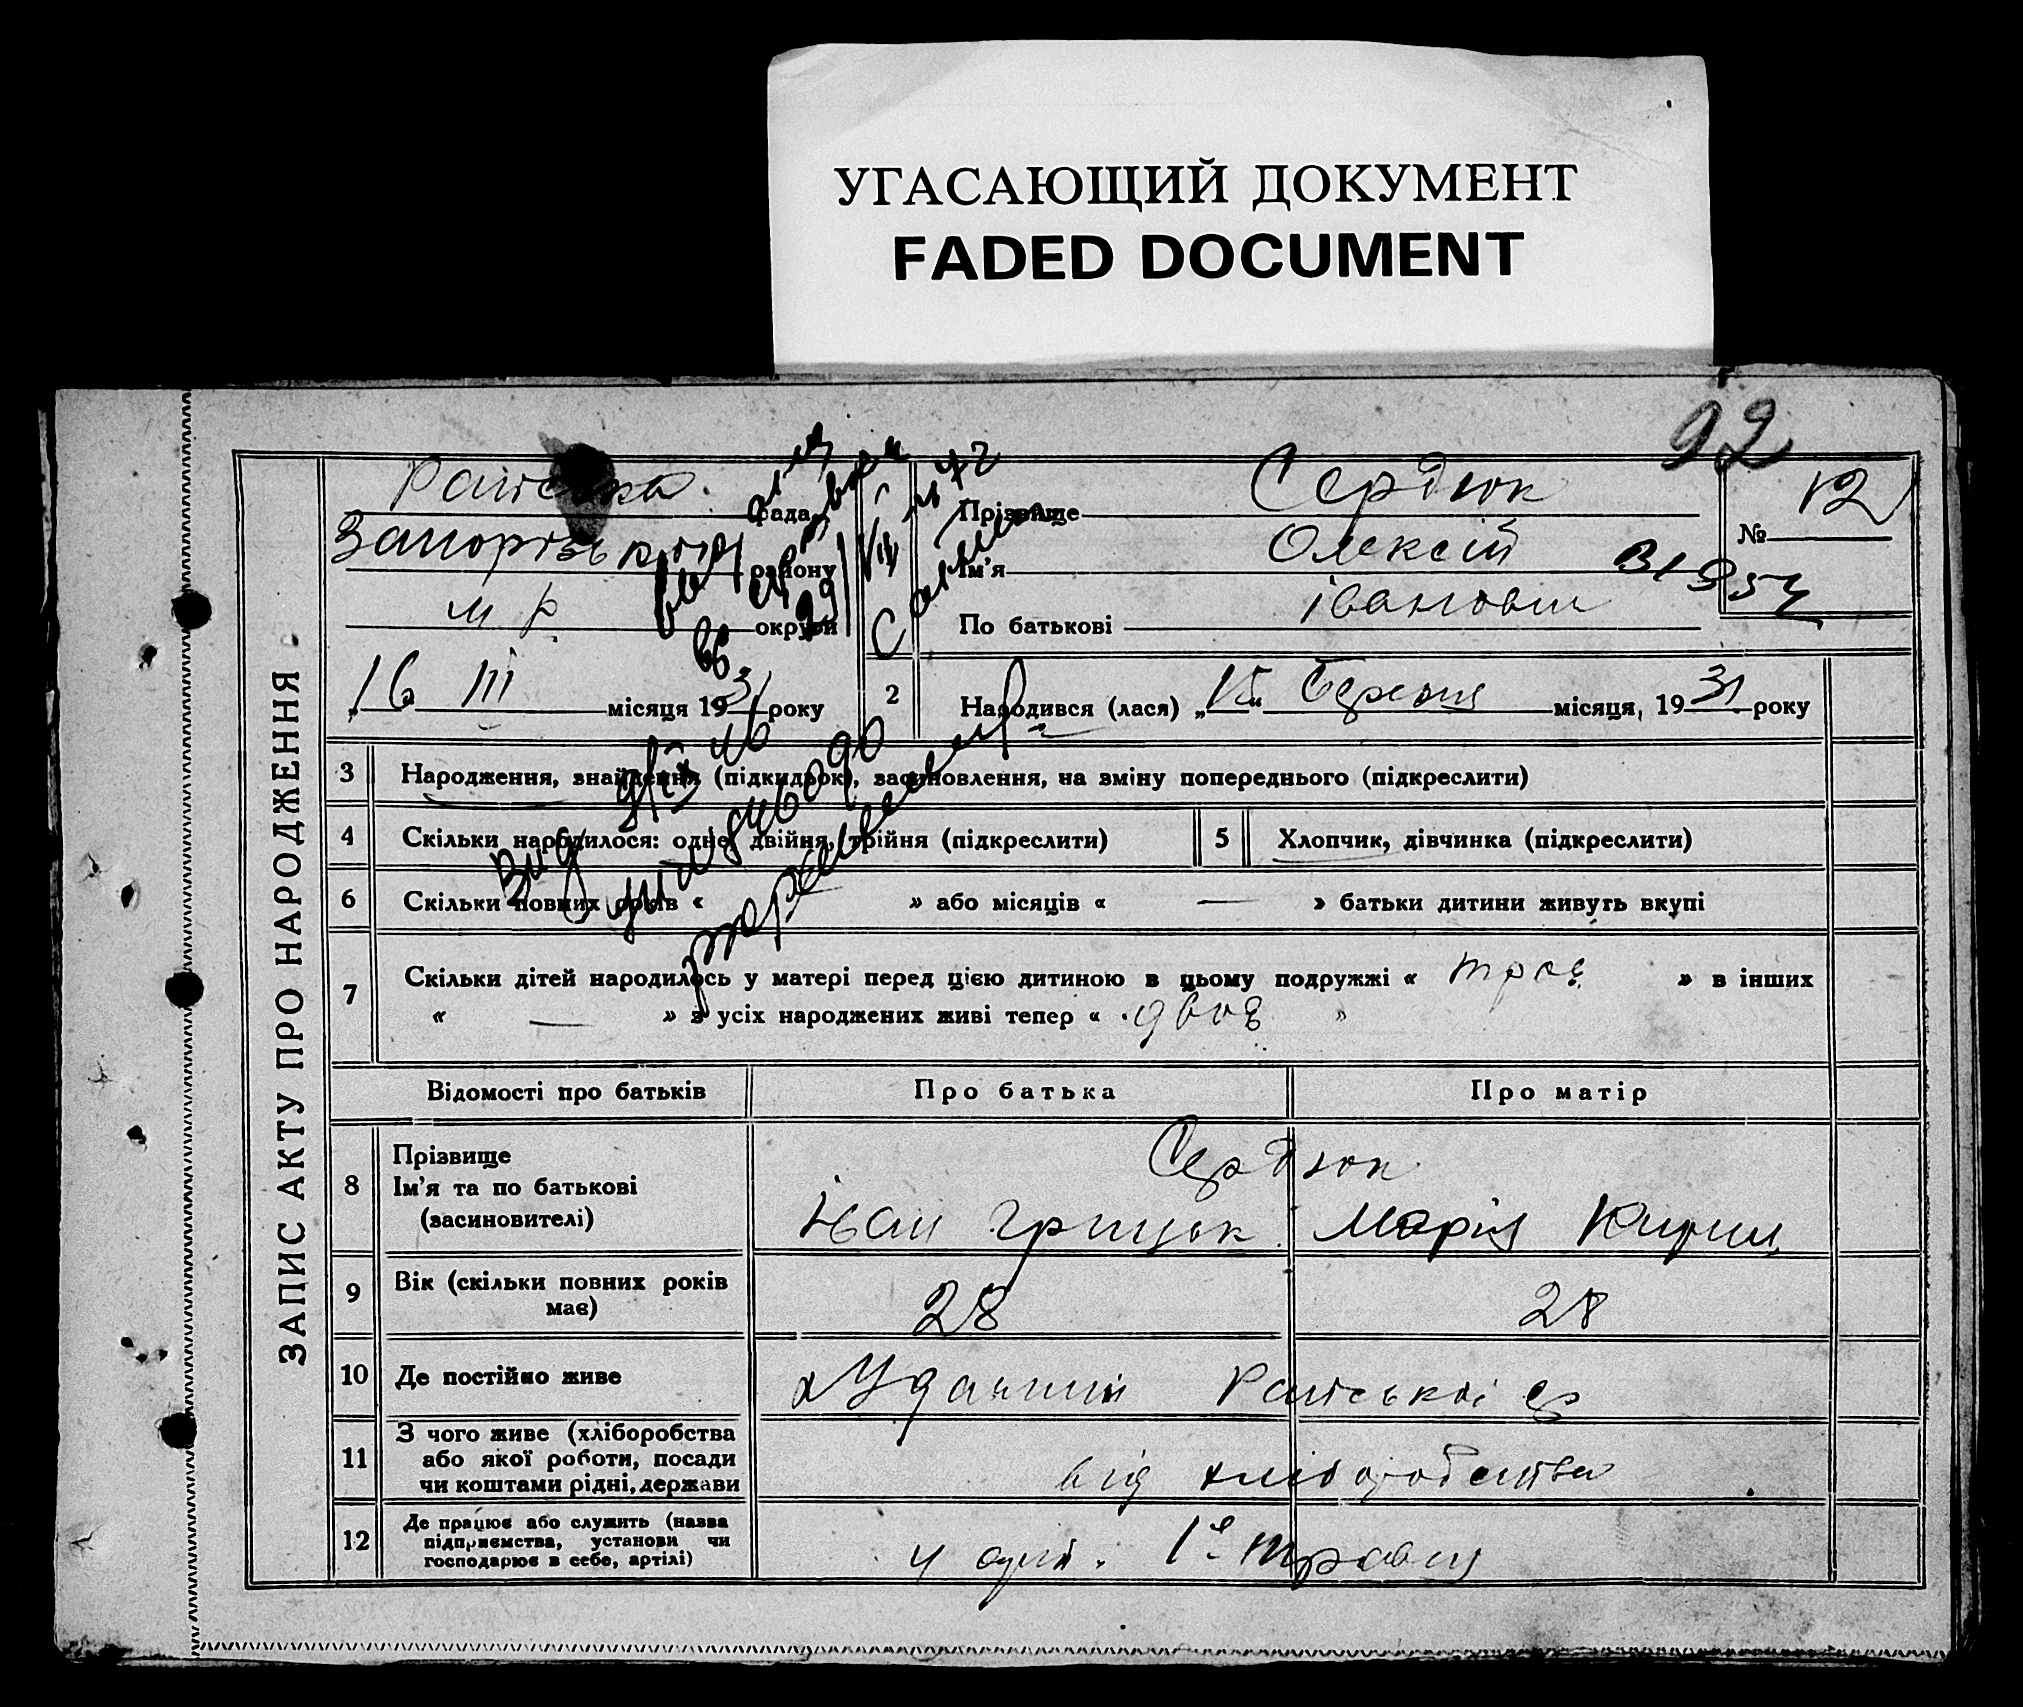 УГАСАЮЩИЙ ДОКУМЕНТ
FADED DOCUMENT
92
ЗАПИС АКТУ ПРО НАРОДЖЕННЯ
рада
району
округи
м. р.
„16 III місяця 1931 року
Прізвище Сердюк
Ім'я Олексій
По батькові Іванович
№ 12
2 Народився (лася) „15“ Березня місяця, 1931 року
3 Народження, знайдення (підкидьок), засиновлення, на зміну попереднього (підкреслити)
4 Скільки народилося: одне, двійня, трійня (підкреслити)
5 Хлопчик, дівчинка (підкреслити)
6 Скільки повних років « » або місяців « — » батьки дитини живуть вкупі
7 Скільки дітей народилось у матері перед цією дитиною в цьому подружжі « троє » в інших
« — » з усіх народжених живі тепер « двоє »
Відомості про батьків Про батька Про матір
8 Прізвище
Ім'я та по батькові
(засиновителі)
Сердюк
Іван Грицьк. Марія Кирил.
9 Вік (скільки повних років
має)
28 28
10 Де постійно живе
Райської
11 З чого живе (хліборобства
або якої роботи, посади
чи коштами рідні, держави
від хліборобства
12 Де працює або служить (назва
підприємства, установи чи
господарює в себе, артілі)
у арт. 1е травня